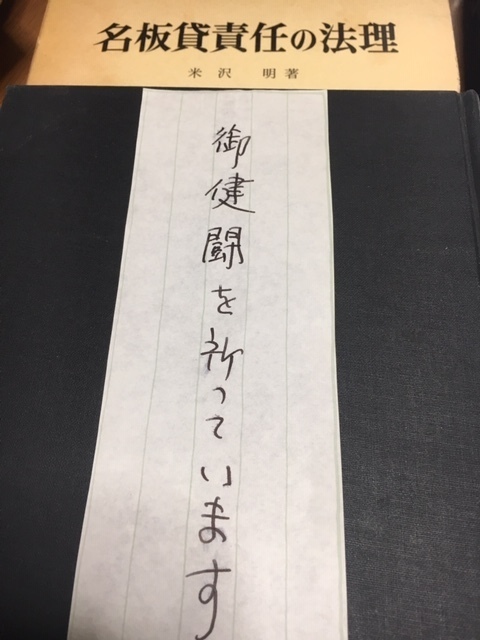 名板貸責任の法理
米沢 明著
御健闘を祈っています